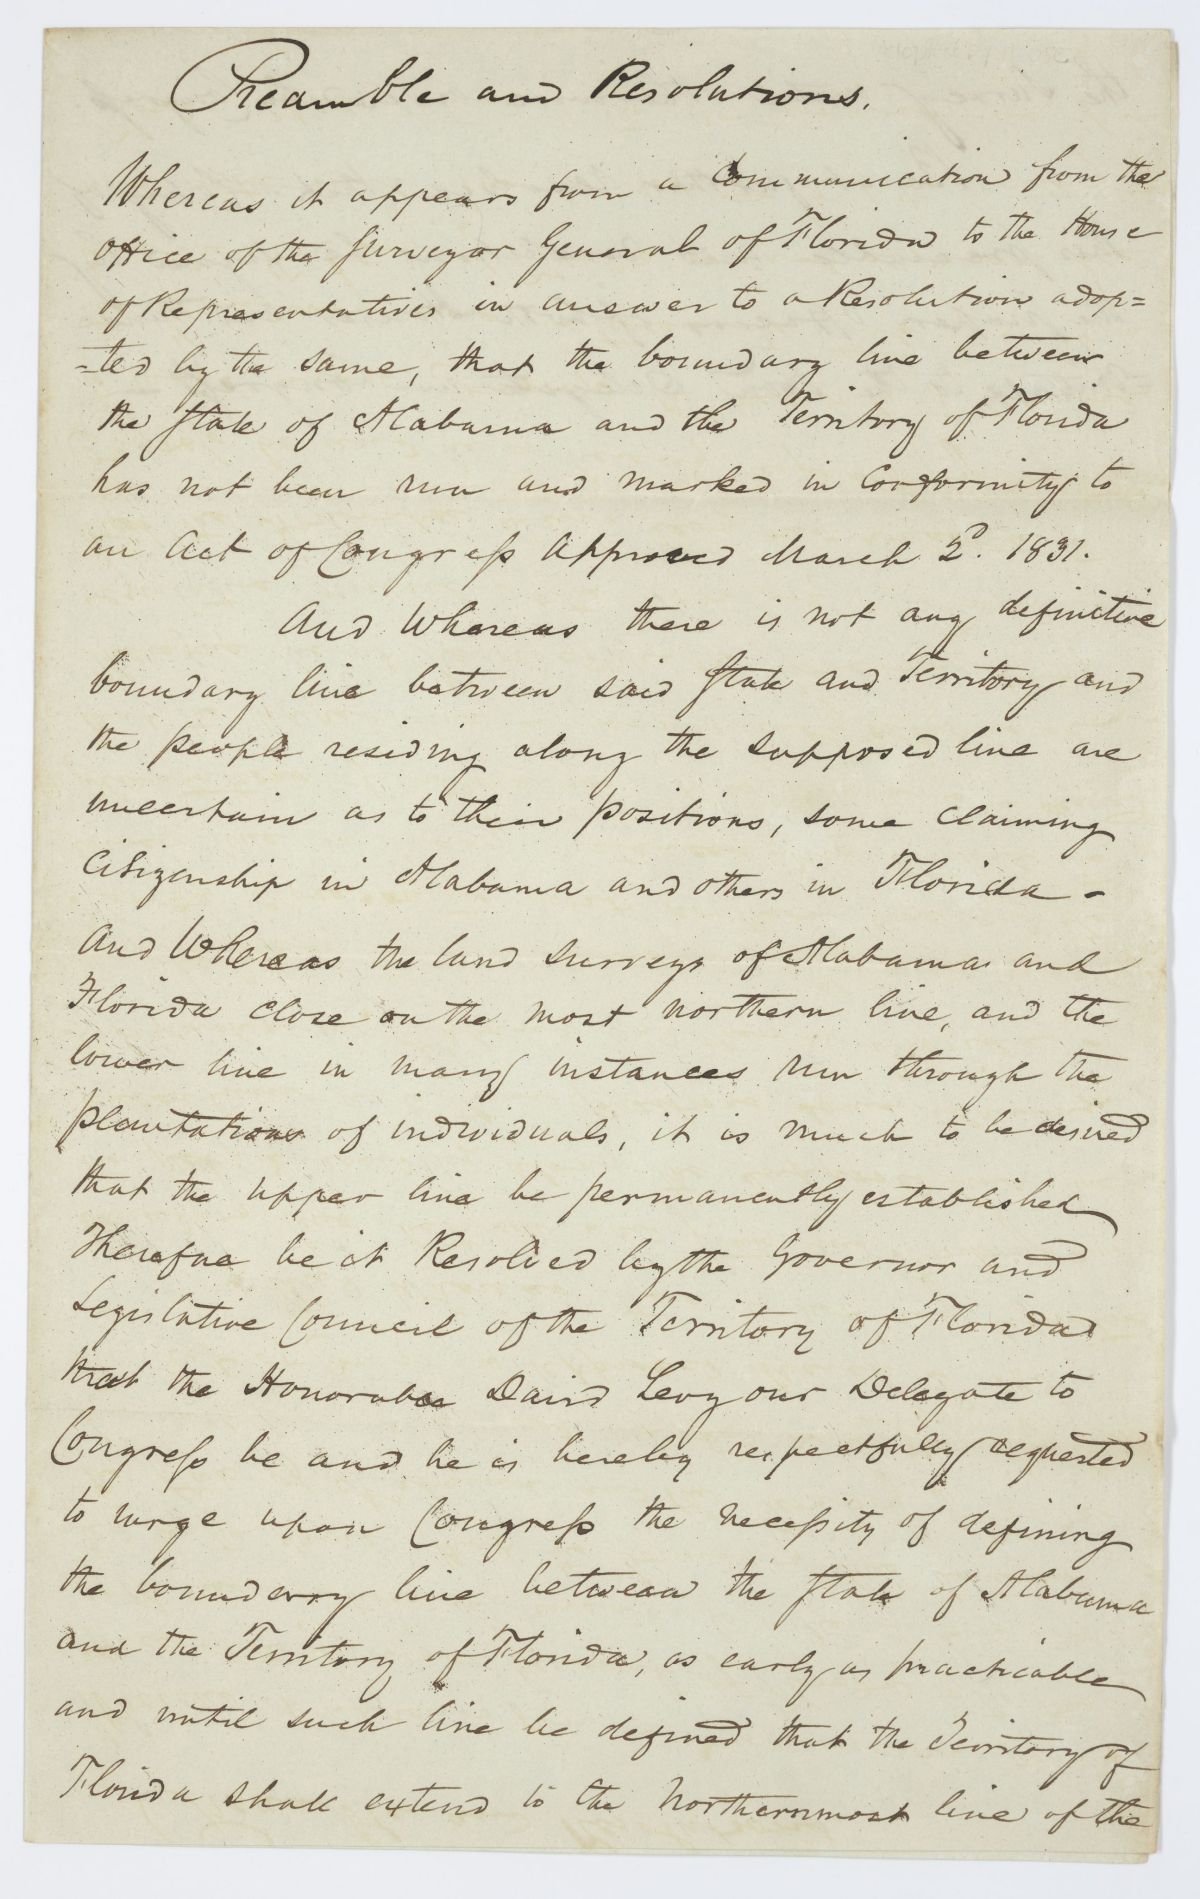 Preamble and Resolutions.
Whereas it appears from a Communication from the
Office of the Surveyor General of Florida to the House
of Representatives in answer to a Resolution adop=
=ted by the same, that the boundary line between
the State of Alabama and the Territory of Florida
has not been run and marked in Conformity to
an Act of Congress Approved March 2d. 1831.
And Whereas there is not any definitive
boundary line between said State and Territory and
the people residing along the supposed line are
uncertain as to their positions, some claiming
Citizenship in Alabama and others in Florida -
And Whereas the land surveys of Alabama and
Florida close on the most northern line, and the
lower line in many instances run through the
plantations of individuals, it is much to be desired
that the upper line be permanently established
Therefore be it Resolved by the Governor and
Legislative Council of the Territory of Florida
that the Honorable David Levy our Delegate to
Congress be and he is hereby respectfully requested
to urge upon Congress the necessity of defining
the boundary line between the State of Alabama
and the Territory of Florida, as early as practicable
and until such line be defined that the Territory of
Florida shall extend to the Northernmost line of the